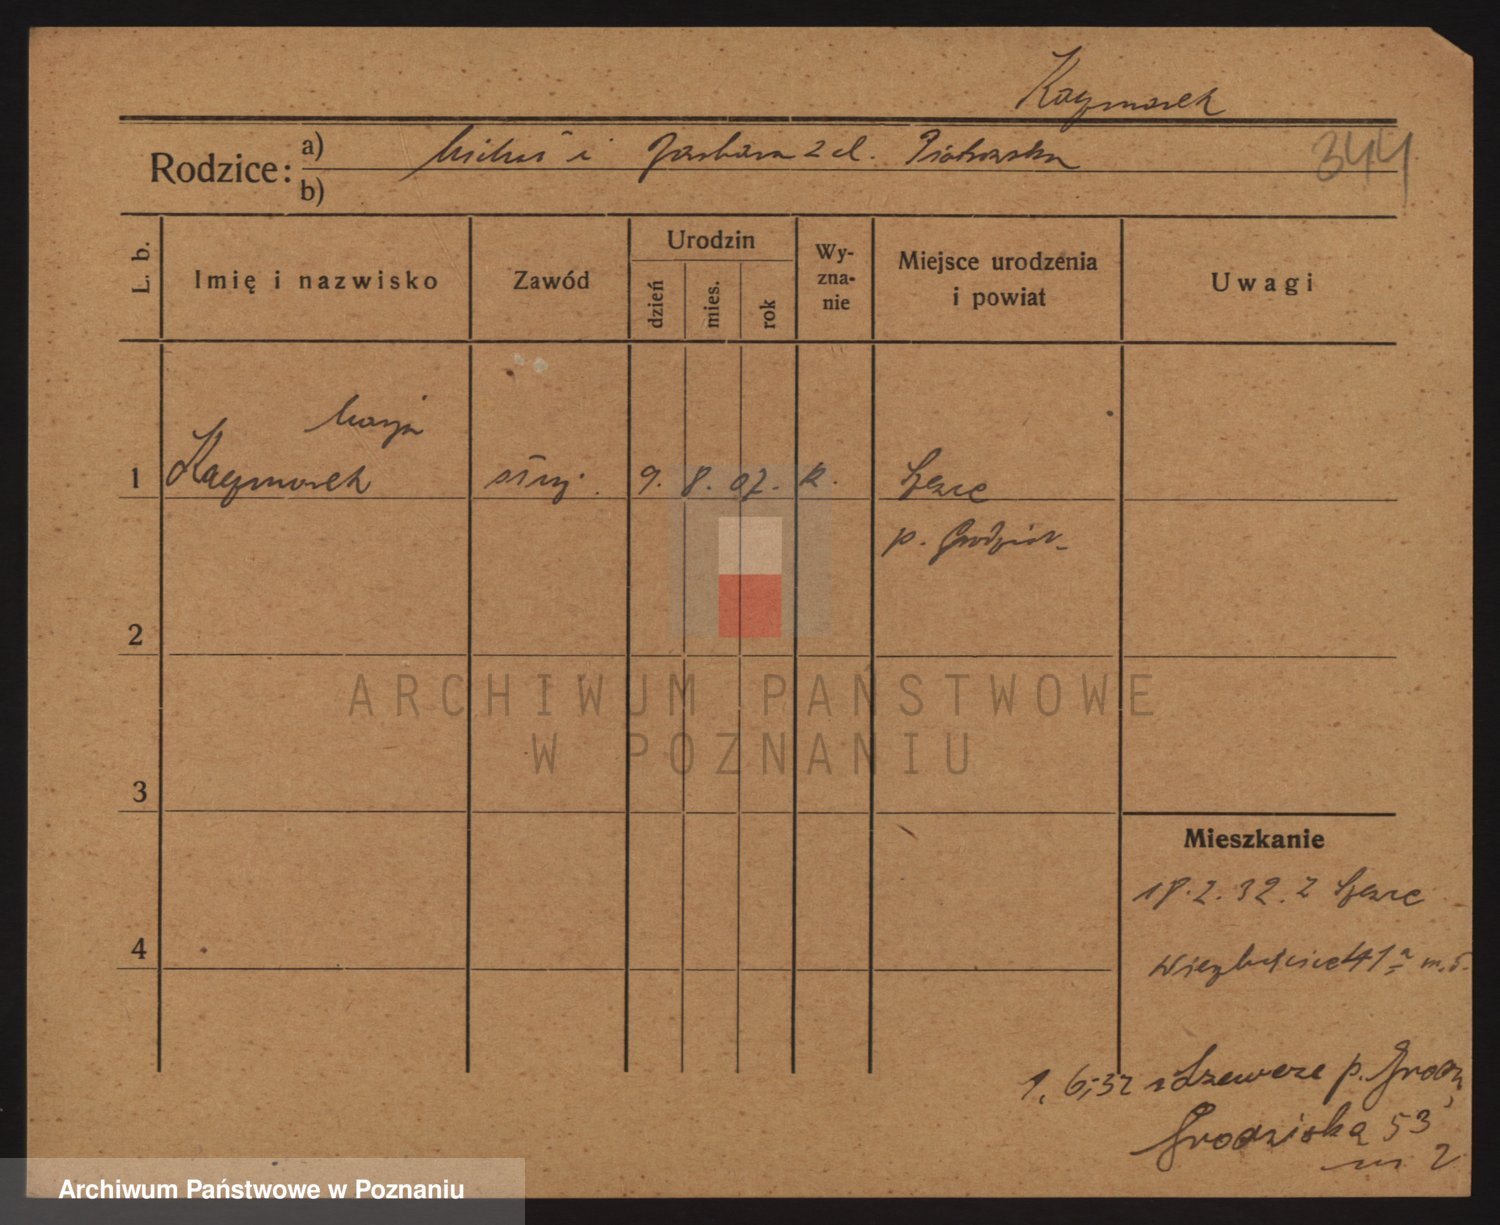 Kaczmarek
Rodzice:
a) i Barbara z d. Piotrowska
344
b)
L. b.
Imię i nazwisko
Zawód
Urodzin
dzień
mies.
rok
Wy-
zna-
nie
Miejsce urodzenia
i powiat
Uwagi
Marja
1 Kaczmarek służ. 9. 8. 07. k.
p. Grodzisk
2
ARCHIWUM PAŃSTWOWE
W POZNANIU
3
Mieszkanie
18.2.32. z
4
41a m. 5.
1. 6. 32 p. Grodz.
Grodziska 53
m 2
Archiwum Państwowe w Poznaniu